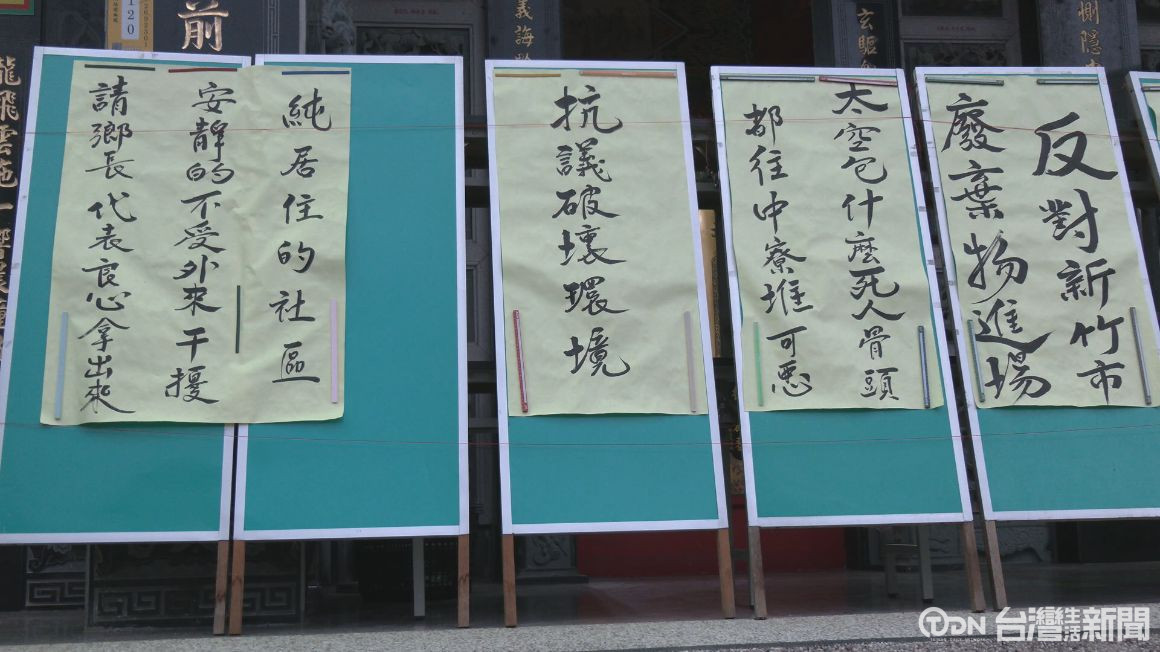 反對新竹市
廢棄物進場
太空包什麼死人骨頭
都往中寮堆可惡
抗議破壞環境
純居住的社區
安靜的不受外來干擾
請鄉長代表良心拿出來
前
120
龍飛雲施
義誨
玄
惻隱
TDN 台灣生活新聞